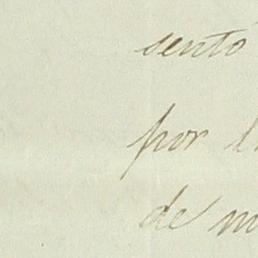 sentó
por l
de m